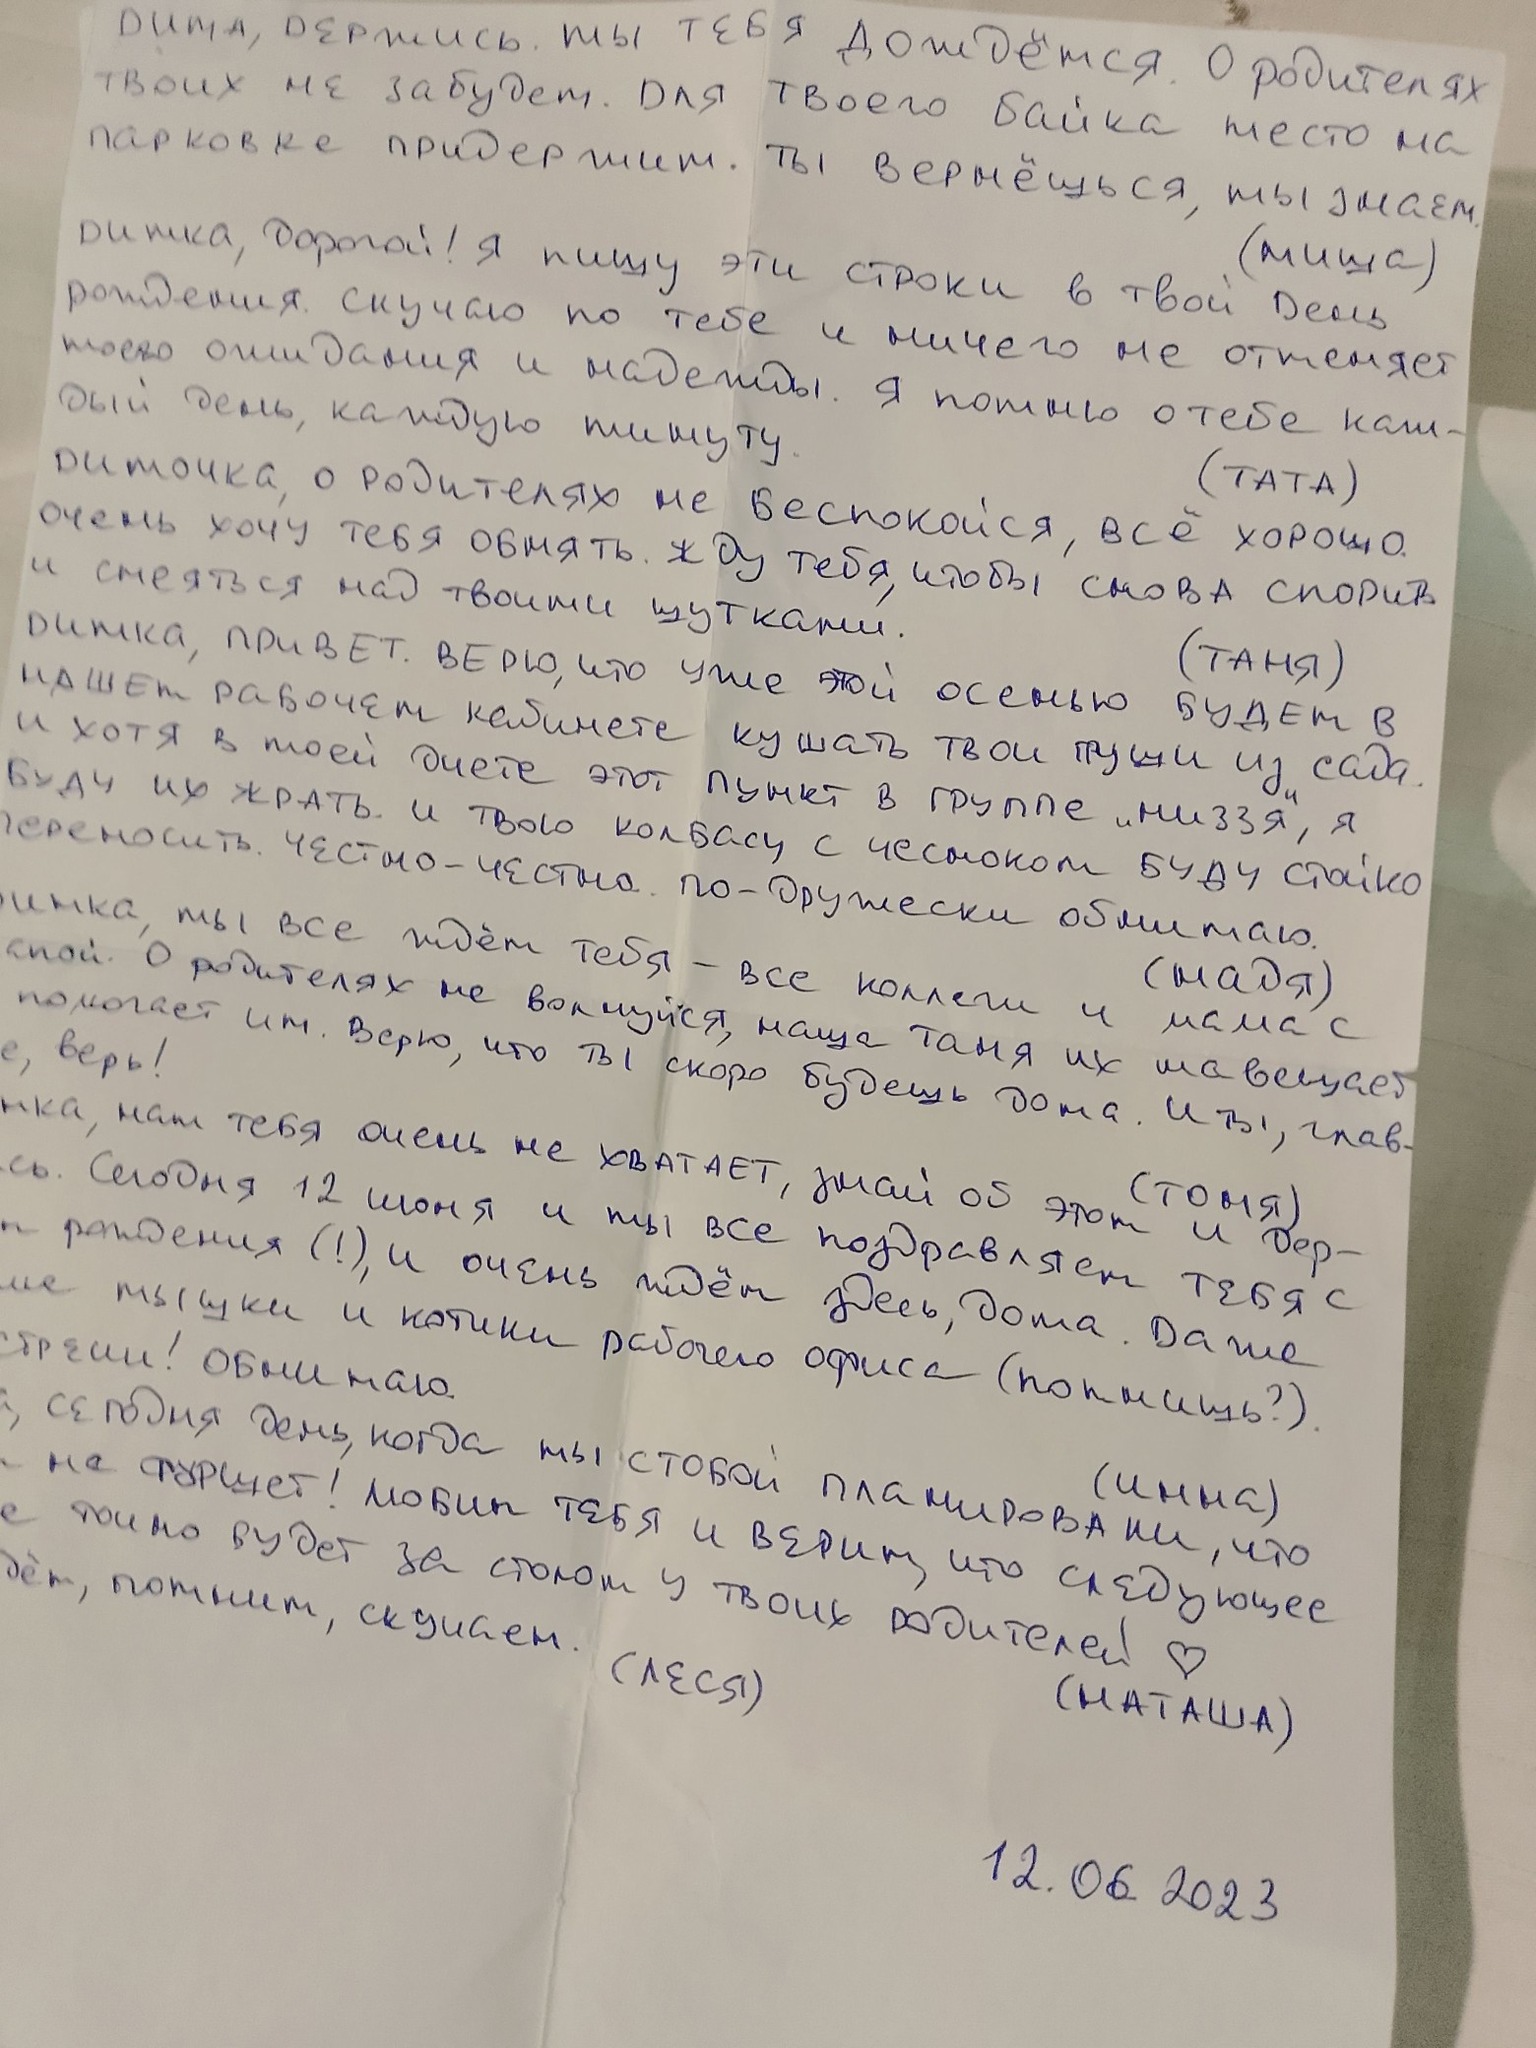 Дима, держись. Мы тебя дождёмся. О родителях
твоих не забудем. Для твоего байка место на
парковке придержим. Ты вернёшься, мы знаем.
(Миша)
Димка, дорогой! Я пишу эти строки в твой День
рождения. Скучаю по тебе и ничего не отменяет
моего ожидания и надежды. Я помню о тебе каж-
дый день, каждую минуту.
(ТАТА)
Димочка, о родителях не беспокойся, всё хорошо.
Очень хочу тебя обнять. Жду тебя, чтобы снова спорить
и смеяться над твоими шутками.
(ТАНЯ)
Димка, привет. Верю, что уже этой осенью будем в
нашем рабочем кабинете кушать твои груши из сада.
И хотя в моей диете этот пункт в группе „низзя", я
буду их жрать. И твою колбасу с чесноком буду стойко
переносить. Честно-честно. По-дружески обнимаю.
(НАДЯ)
Димка, мы все ждём тебя – все коллеги и мама с
апой. О родителях не волнуйся, наша Таня их навещает
помогает им. Верю, что ты скоро будешь дома. И ты, глав-
е, верь!
(ТОНЯ)
мка, нам тебя очень не хватает, знай об этом и дер-
сь. Сегодня 12 июня и мы все поздравляем тебя с
м рождения (!), и очень ждём здесь, дома. Даже
ие мышки и котики рабочего офиса (помнишь?).
стреши! Обнимаю.
(ИННА)
а, сегодня день, когда мы с тобой планировали, что
м на фуршет! Любим тебя и верим, что следующее
е точно будет за столом у твоих родителей ♡
(НАТАША)
дём, помним, скучаем.
(ЛЕСЯ)
12.06 2023